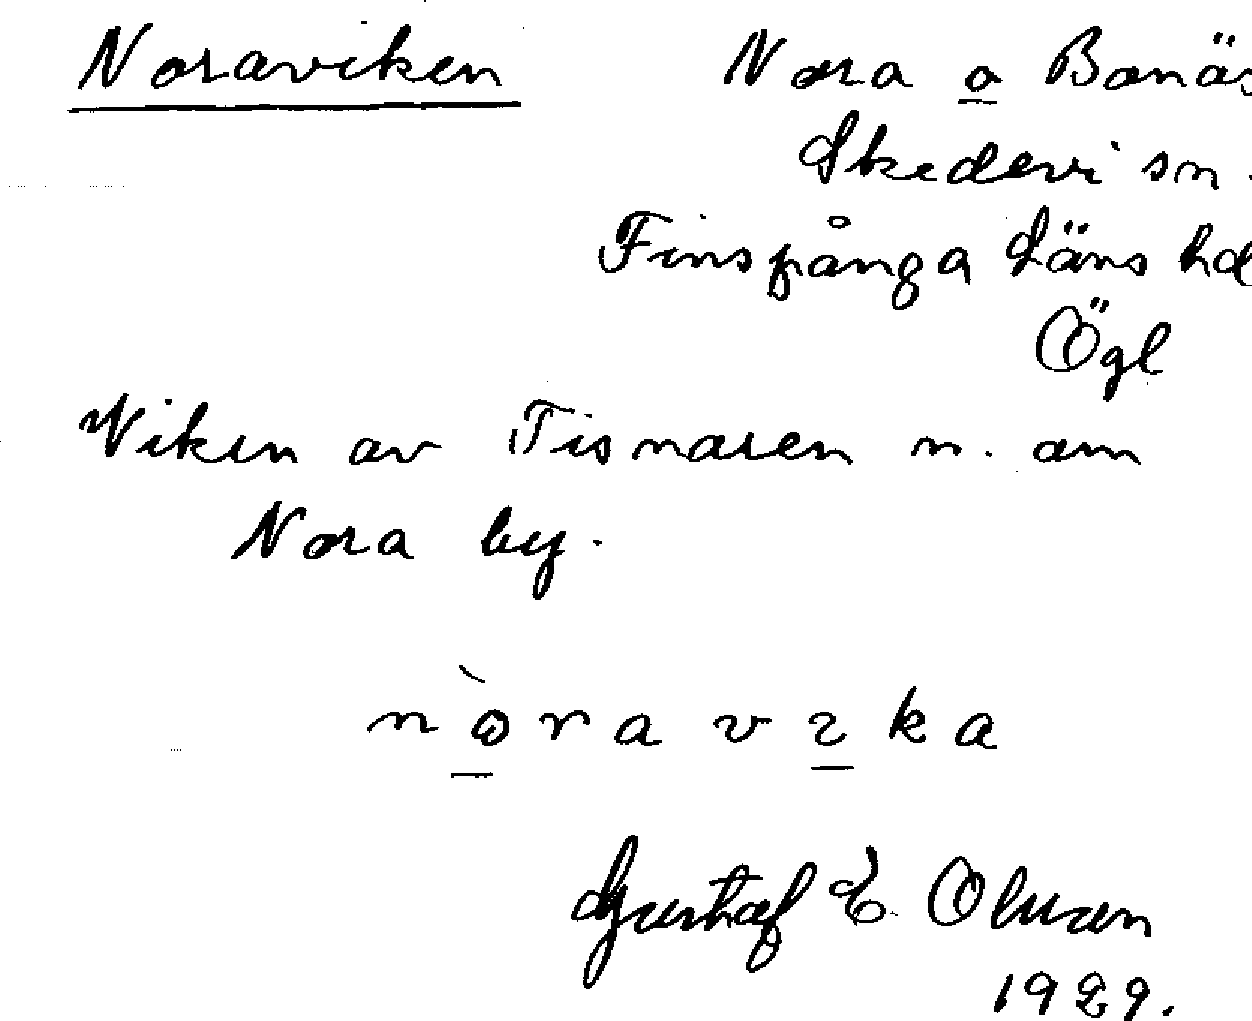 Noraviken Nora o Bonäs
Skedevi sn.
Finspånga Läns hd
Ögl
Viken av Tisnaren n. om
Nora by.
nòravıka
Gustaf E Olsson
1929.